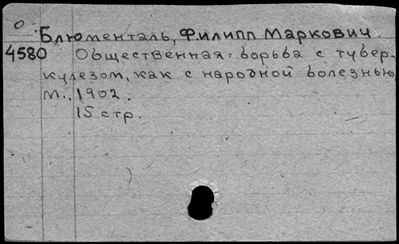 Блюменталь, Филипп Маркович.
4580 Общественная борьба с тубер-
кулезом, как с народной болезнью
М., 1902.
15 стр.